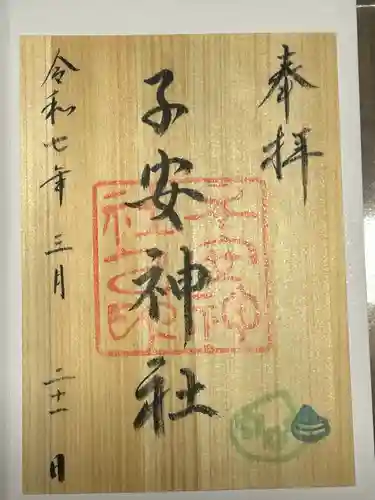 奉拝
子安神社
令和七年 三月 二十一日